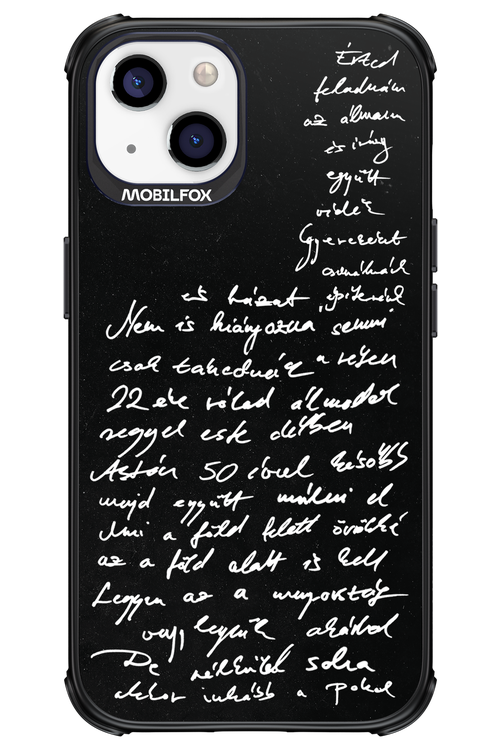 MOBILFOX
Érted
feladnám
az álmom
és irány
együtt
vidék
Gyerekeink
csinálnánk
és házat építenénk
Nem is hiányozna semmi
csak takednéz a réten
22 éve rólad álmodok
reggel este délben
Aztán 50 évvel később
majd együtt múlni el
Ami a föld felett örökké
az a föld alatt is kell
Legyen az a mennyország
vagy legyünk akárhol
De nélküled soha
akkor inkább a Pokol